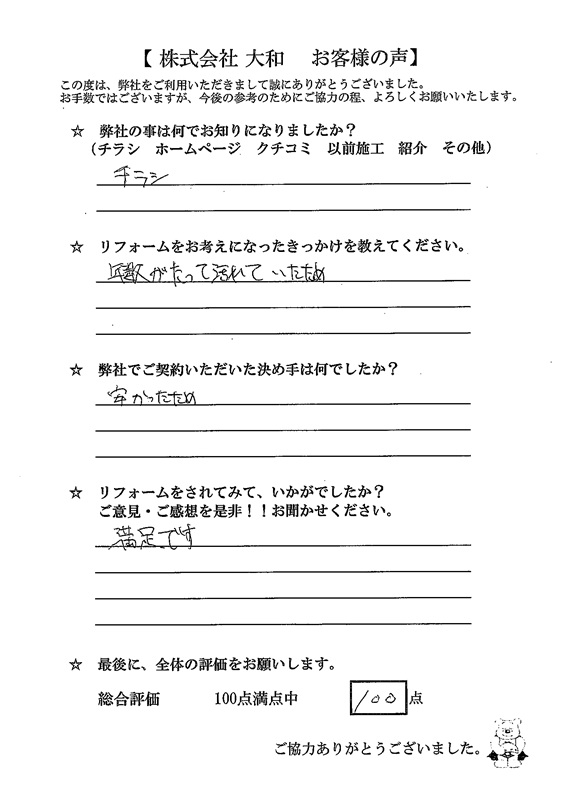 【 株式会社 大和　お客様の声】
この度は、弊社をご利用いただきまして誠にありがとうございました。
お手数ではございますが、今後の参考のためにご協力の程、よろしくお願いいたします。
☆　弊社の事は何でお知りになりましたか？
（チラシ　ホームページ　クチコミ　以前施工　紹介　その他）
チラシ
☆　リフォームをお考えになったきっかけを教えてください。
年数がたって汚れていたため
☆　弊社でご契約いただいた決め手は何でしたか？
安かったため
☆　リフォームをされてみて、いかがでしたか？
ご意見・ご感想を是非！！お聞かせください。
満足です
☆　最後に、全体の評価をお願いします。
総合評価　100点満点中　100点
ご協力ありがとうございました。